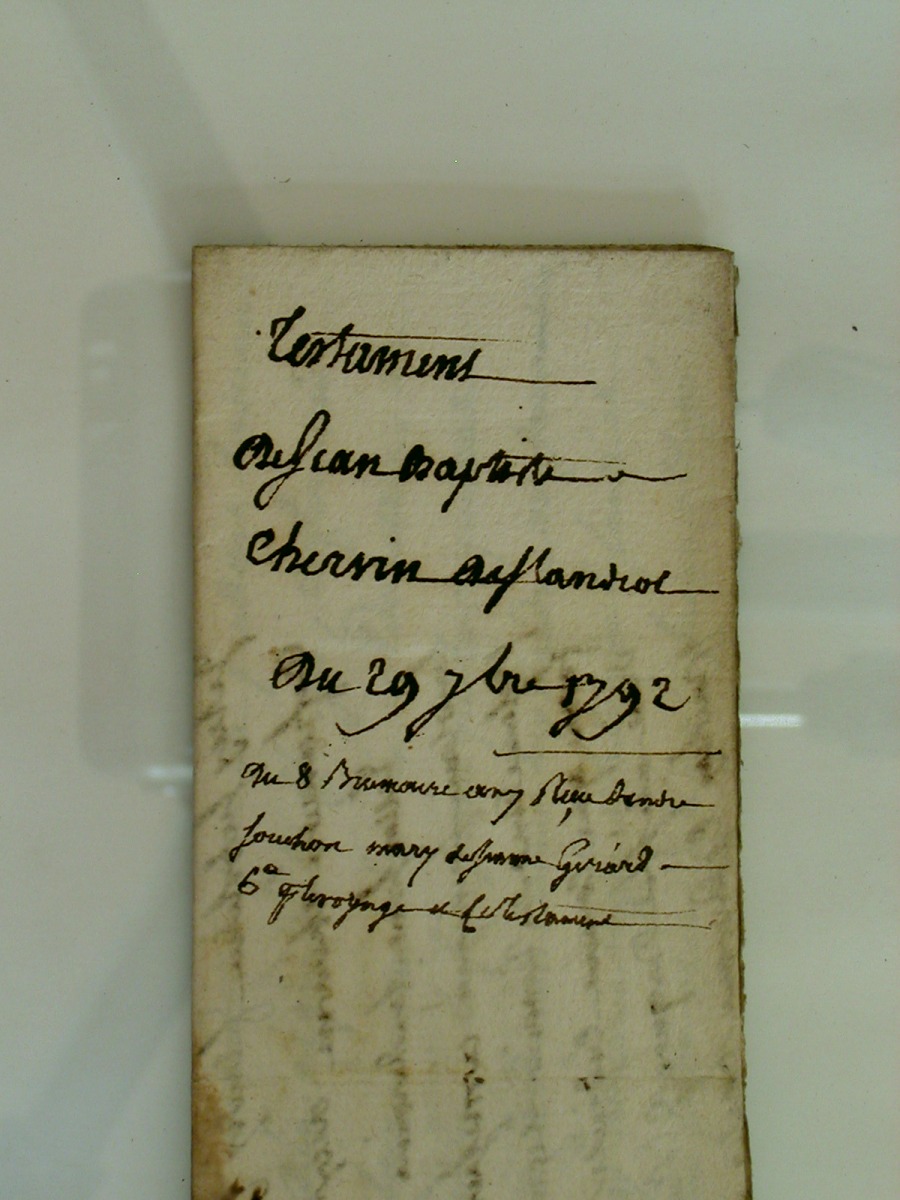 Testament
de Jean Baptiste
Chervin de flandrot
Du 29 7bre 1792
du 8 Brumaire an 7 Reçu d'andre
souchon mary de jeanne Girard
6# et le testament